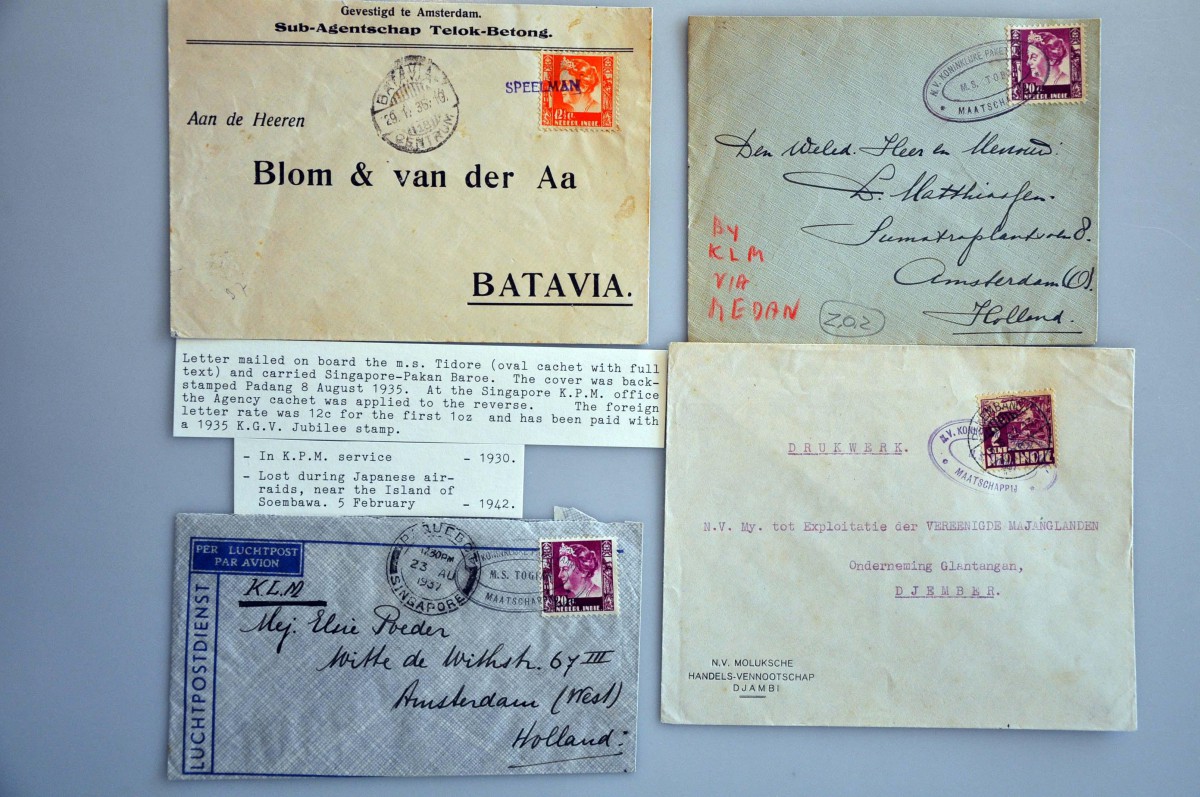 Gevestigd te Amsterdam.
Sub-Agentschap Telok-Betong.
BATAVIA
CENTRUM
SPEELMAN
12½ c
NEDERL. INDIE
Aan de Heeren
Blom & van der Aa
BATAVIA.
N.V. KONINKLIJKE PAKE
M.S. TOB
MAATSCHAPP
20 c
NEDERL. INDIE
Den Weled. Heer en Mevrouw:
D. Matthiassen.
Sumatraplantsoen 8.
Amsterdam (O).
Holland.
By
KLM
VIA
MEDAN
Z.O.Z
Letter mailed on board the m.s. Tidore (oval cachet with full
text) and carried Singapore-Pakan Baroe. The cover was back-
stamped Padang 8 August 1935. At the Singapore K.P.M. office
the Agency cachet was applied to the reverse. The foreign
letter rate was 12c for the first 1oz and has been paid with
a 1935 K.G.V. Jubilee stamp.
- In K.P.M. service - 1930.
- Lost during Japanese air-
raids, near the Island of
Soembawa. 5 February - 1942.
N.V. KONI
MAATSCHAPPIJ
DRUKWERK.
N.V. My. tot Exploitatie der VEREENIGDE MAJANGLANDEN
Onderneming Glantangan,
DJEMBER.
N.V. MOLUKSCHE
HANDELS-VENNOOTSCHAP
DJAMBI
PER LUCHTPOST
PAR AVION
LUCHTPOSTDIENST
K.L.M
PAQUEBOT
11.30PM
23 AU
1937
SINGAPORE
KONINKLIJKE
M.S. TOGI
MAATSCHAPP
20 c
NEDERL. INDIE
Mej. Elsie Poeder
Witte de Withstr. 67 III
Amsterdam (West)
Holland.